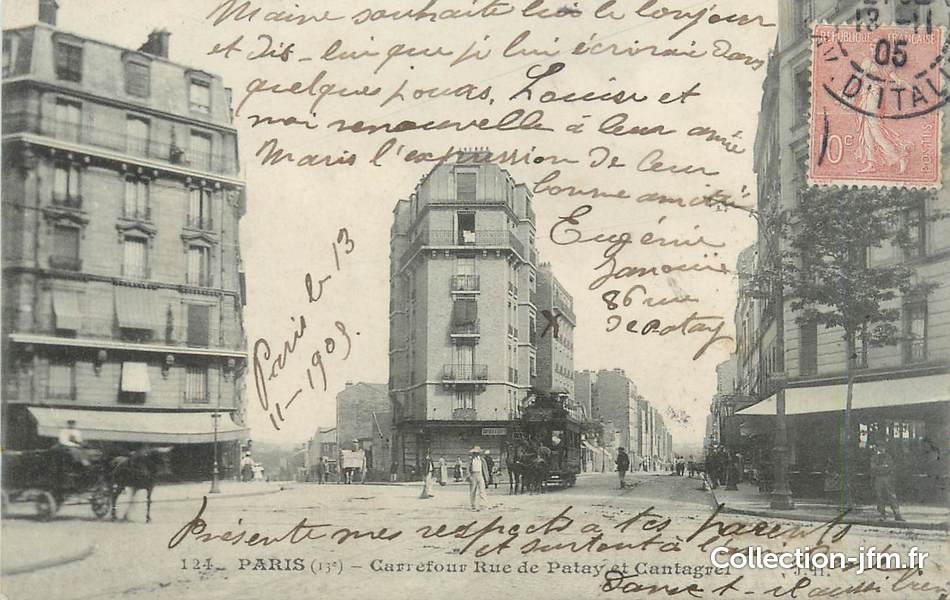 Marie souhaite le bonjour
et dis-lui que je lui écrirai dans
quelques jours. Louise et
moi renouvelle à leur amie
Maris l'expression de leur
bonne amitié
Eugénie
86 rue
de Patay
Paris le 13
11-1905.
RÉPUBLIQUE FRANÇAISE
10c
POSTES
13-11
05
D'ITALIE
Présente mes respects à tes parents
et surtout à
124_ PARIS (13e) - Carrefour Rue de Patay et Cantagrel J.H.
Collection-jfm.fr